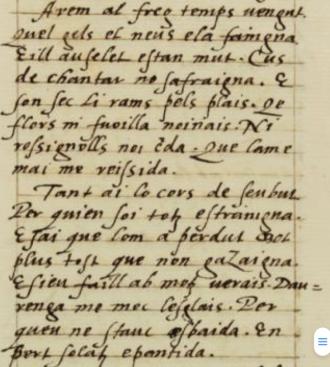 Arem al freg temps vengut.
Quel gels el neus e la faingna
E ill auselet estan mut. Cus
de chantar no safraigna. E
son sec li rams pels plais. Qe
flors ni fuoilla noinais. Ni
rossignolls noi c̄da. Que lame
mai me reissida.
Tant ai lo cors de seubut
Per quien soi totz estraingna.
E sai que lom a perdut
plus tost que non gazaigna.
E sieu faill ab motz verais. Dau=
renga me moc lesglais. Per
queu ne stauc esbaida. En
pert solatz